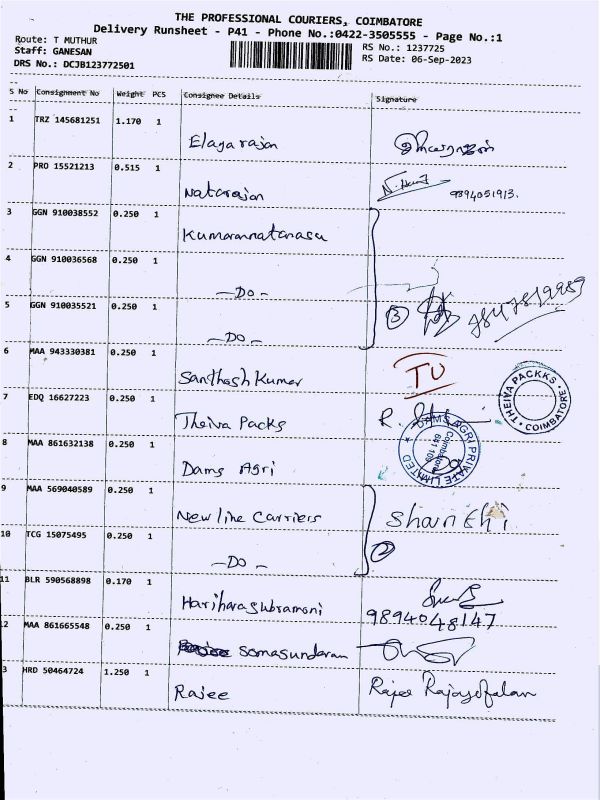 THE PROFESSIONAL COURIERS, COIMBATORE
Delivery Runsheet - P41 - Phone No.:0422-3505555 - Page No.:1
Route: T MUTHUR
Staff: GANESAN
DRS No.: DCJB123772501
RS No.: 1237725
RS Date: 06-Sep-2023
S No Consignment No Weight PCS Consignee Details Signature
1 TRZ 145681251 1.170 1 Elayarajan இளையராஜன்
2 PRO 15521213 0.515 1 Natarajan 9894051913.
3 GGN 910038552 0.250 1 Kumarannatarasu
4 GGN 910036568 0.250 1 -Do-
5 GGN 910035521 0.250 1 -Do- 3
6 MAA 943330381 0.250 1 Santhosh Kumar TU
7 EDQ 16627223 0.250 1 Theiva Packs
THEIVA PACKKS
COIMBATORE
8 MAA 861632138 0.250 1 Dams Agri
DAMS AGRI PRIVATE LIMITED
Coimbatore
641 109
9 MAA 569040589 0.250 1 New line Carriers Shanthi
10 TCG 15075495 0.250 1 -Do- 2
11 BLR 590568898 0.170 1 Hariharasubramoni
9894048147
2 MAA 861665548 0.250 1 Somasundaram
3 HRD 50464724 1.250 1 Rajee Rajee Rajagopalan